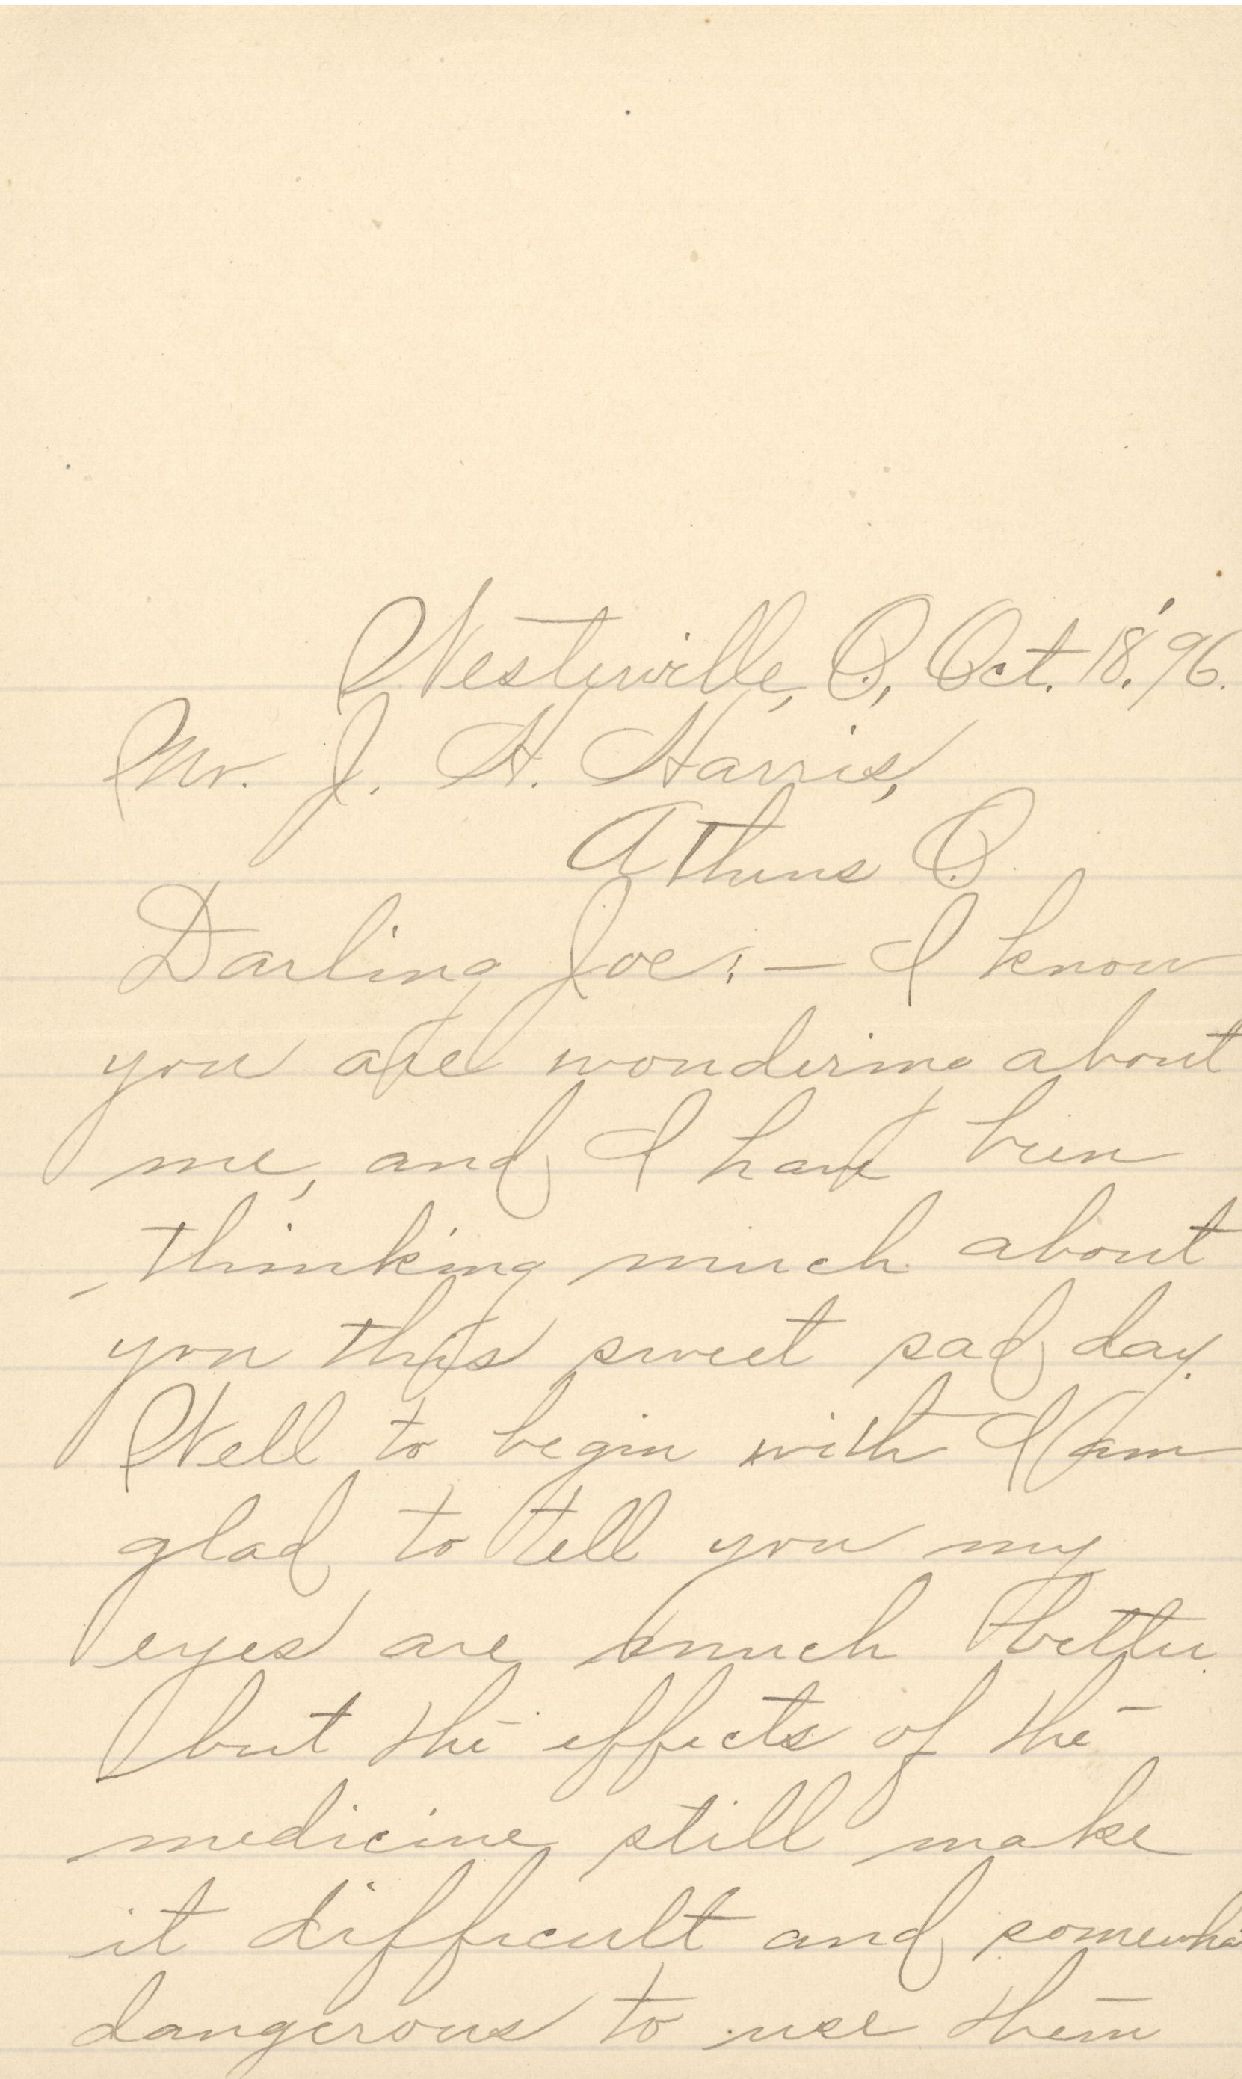 Westerville, O., Oct. 18, '96.
Mr. J. H. Harris,
Athens O.
Darling Joe: — I know
you are wondering about
me, and I have been
thinking much about
you this sweet sad day.
Well to begin with I am
glad to tell you my
eyes are much better
but the effects of the
medicine still make
it difficult and somewha
dangerous to use them